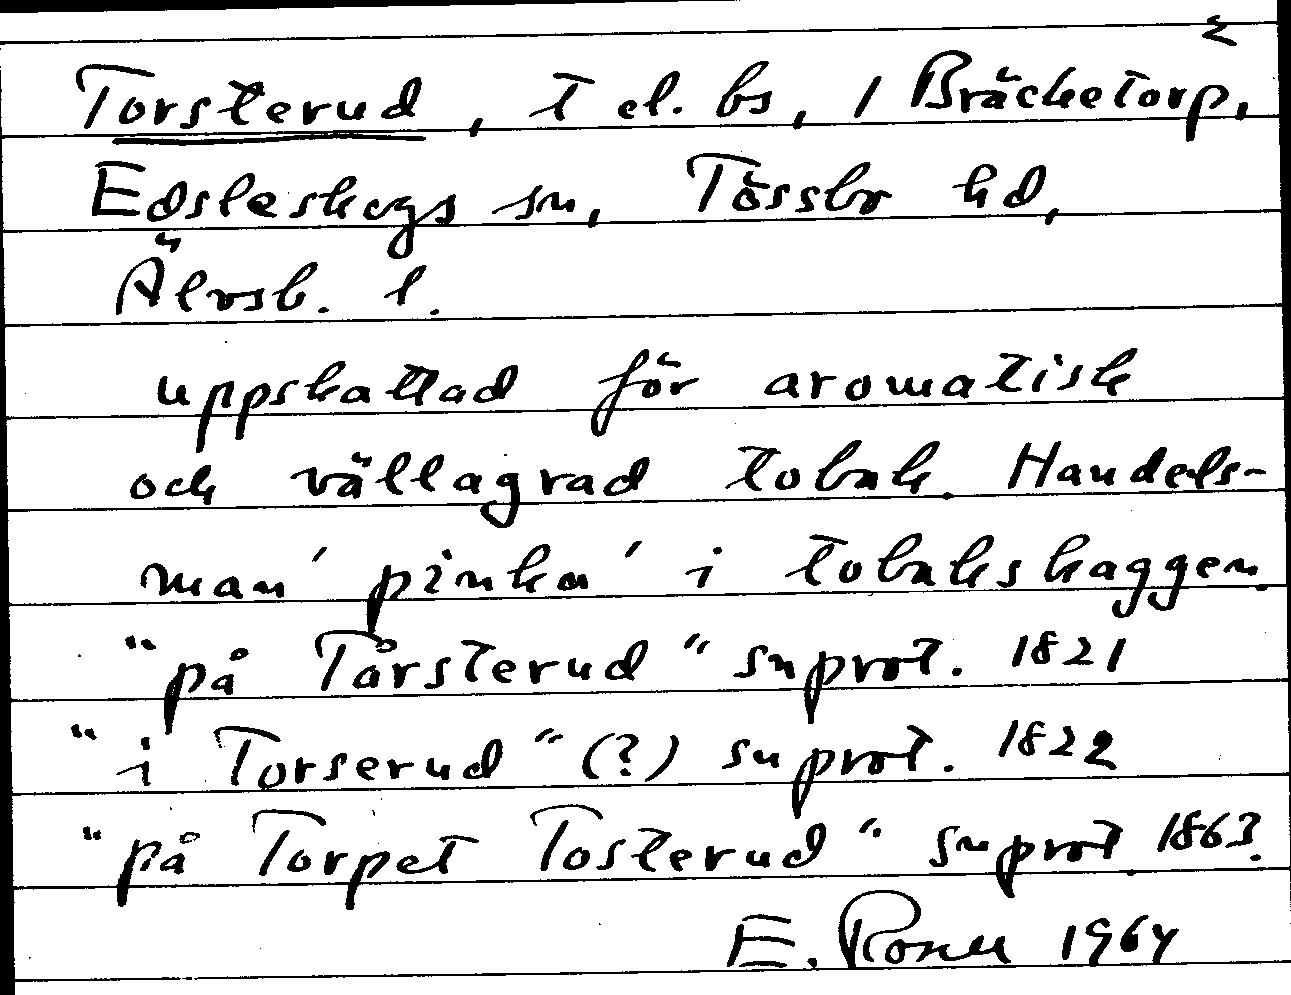 Torsterud, t el. bs, / Bräcketorp,
Edsleskogs sn, Tössbo hd,
Älvsb. l.
uppskattad för aromatisk
och vällagrad tobak. Handels-
man 'pinka' i tobakskaggen.
"på Tårsterud" snprot. 1821
"i Torserud" (?) snprot. 1822
"på Torpet Tosterud" snprot 1863.
E. 1964